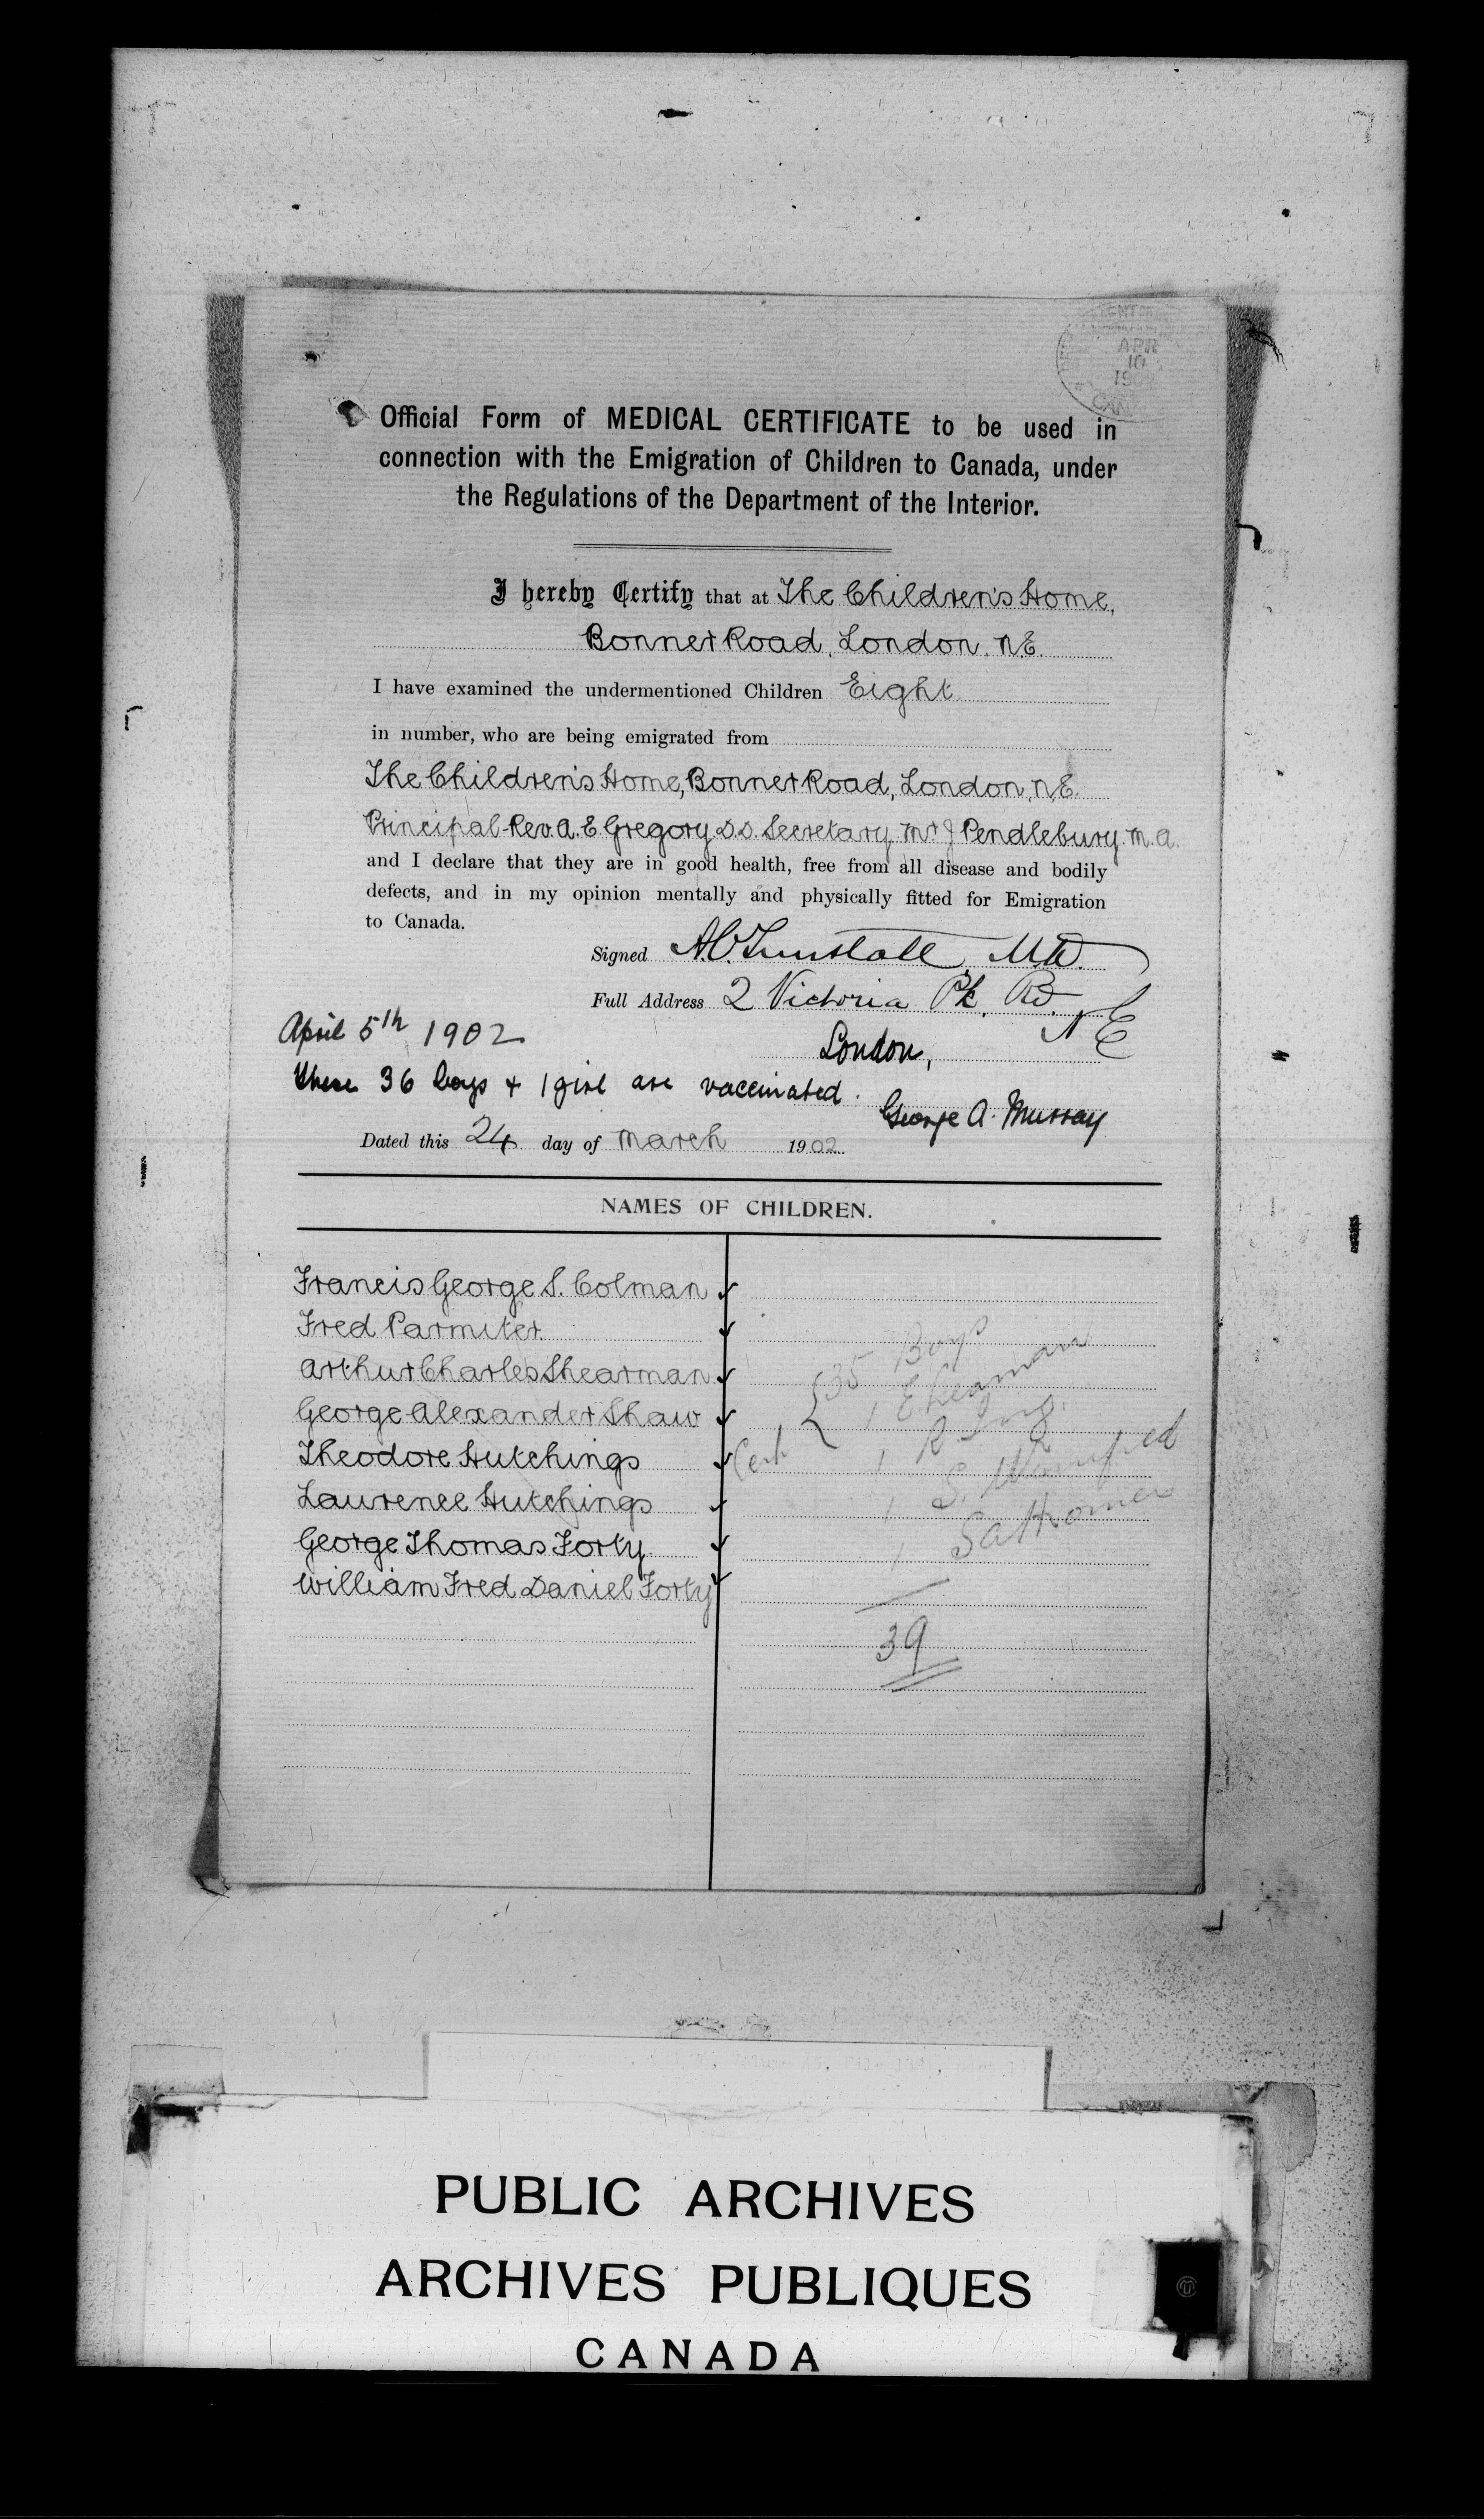 APR
10
CAN
Official Form of MEDICAL CERTIFICATE to be used in
connection with the Emigration of Children to Canada, under
the Regulations of the Department of the Interior.
I hereby Certify that at The Children's Home,
Bonner Road, London. N.E.
I have examined the undermentioned Children Eight
in number, who are being emigrated from
The Children's Home, Bonner Road, London, N.E.
Principal Rev. A. E Gregory D.D. Secretary Mr J Pendlebury. M.A.
and I declare that they are in good health, free from all disease and bodily
defects, and in my opinion mentally and physically fitted for Emigration
to Canada.
Signed A.C. Tunstall, M.D.
Full Address 2 Victoria Pk. Rd. N E
London,
April 5th 1902
These 36 boys + 1 girl are vaccinated.
George A. Murray
Dated this 24 day of March 1902
NAMES OF CHILDREN.
Francis George S. Colman
Fred Parmiter
Arthur Charles Shearman
George Alexander Shaw
Theodore Hutchings
Laurence Hutchings
George Thomas Forty
William Fred Daniel Forty
35 Boys
1
1 R
1 S.
1
39
PUBLIC ARCHIVES
ARCHIVES PUBLIQUES
CANADA